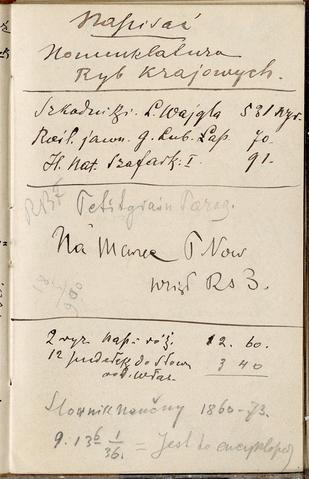 Napisać
Nomenklatura
Ryb Krajowych.
Szkodniki. L. Wajgla 581 Ryc.
Rośl. jawn. g. Lub. Łap. 70.
H. Nat. Szafark. I. 91.
Petitgrain Parag.
Na Marca T Now
wziął Rs 3.
2 ryz. nap. róż. 12. 60.
12 pudełek do słow 3 40
Słownik naučny 1860-73.
9. 13 6 1/36. = Jest to encyklop